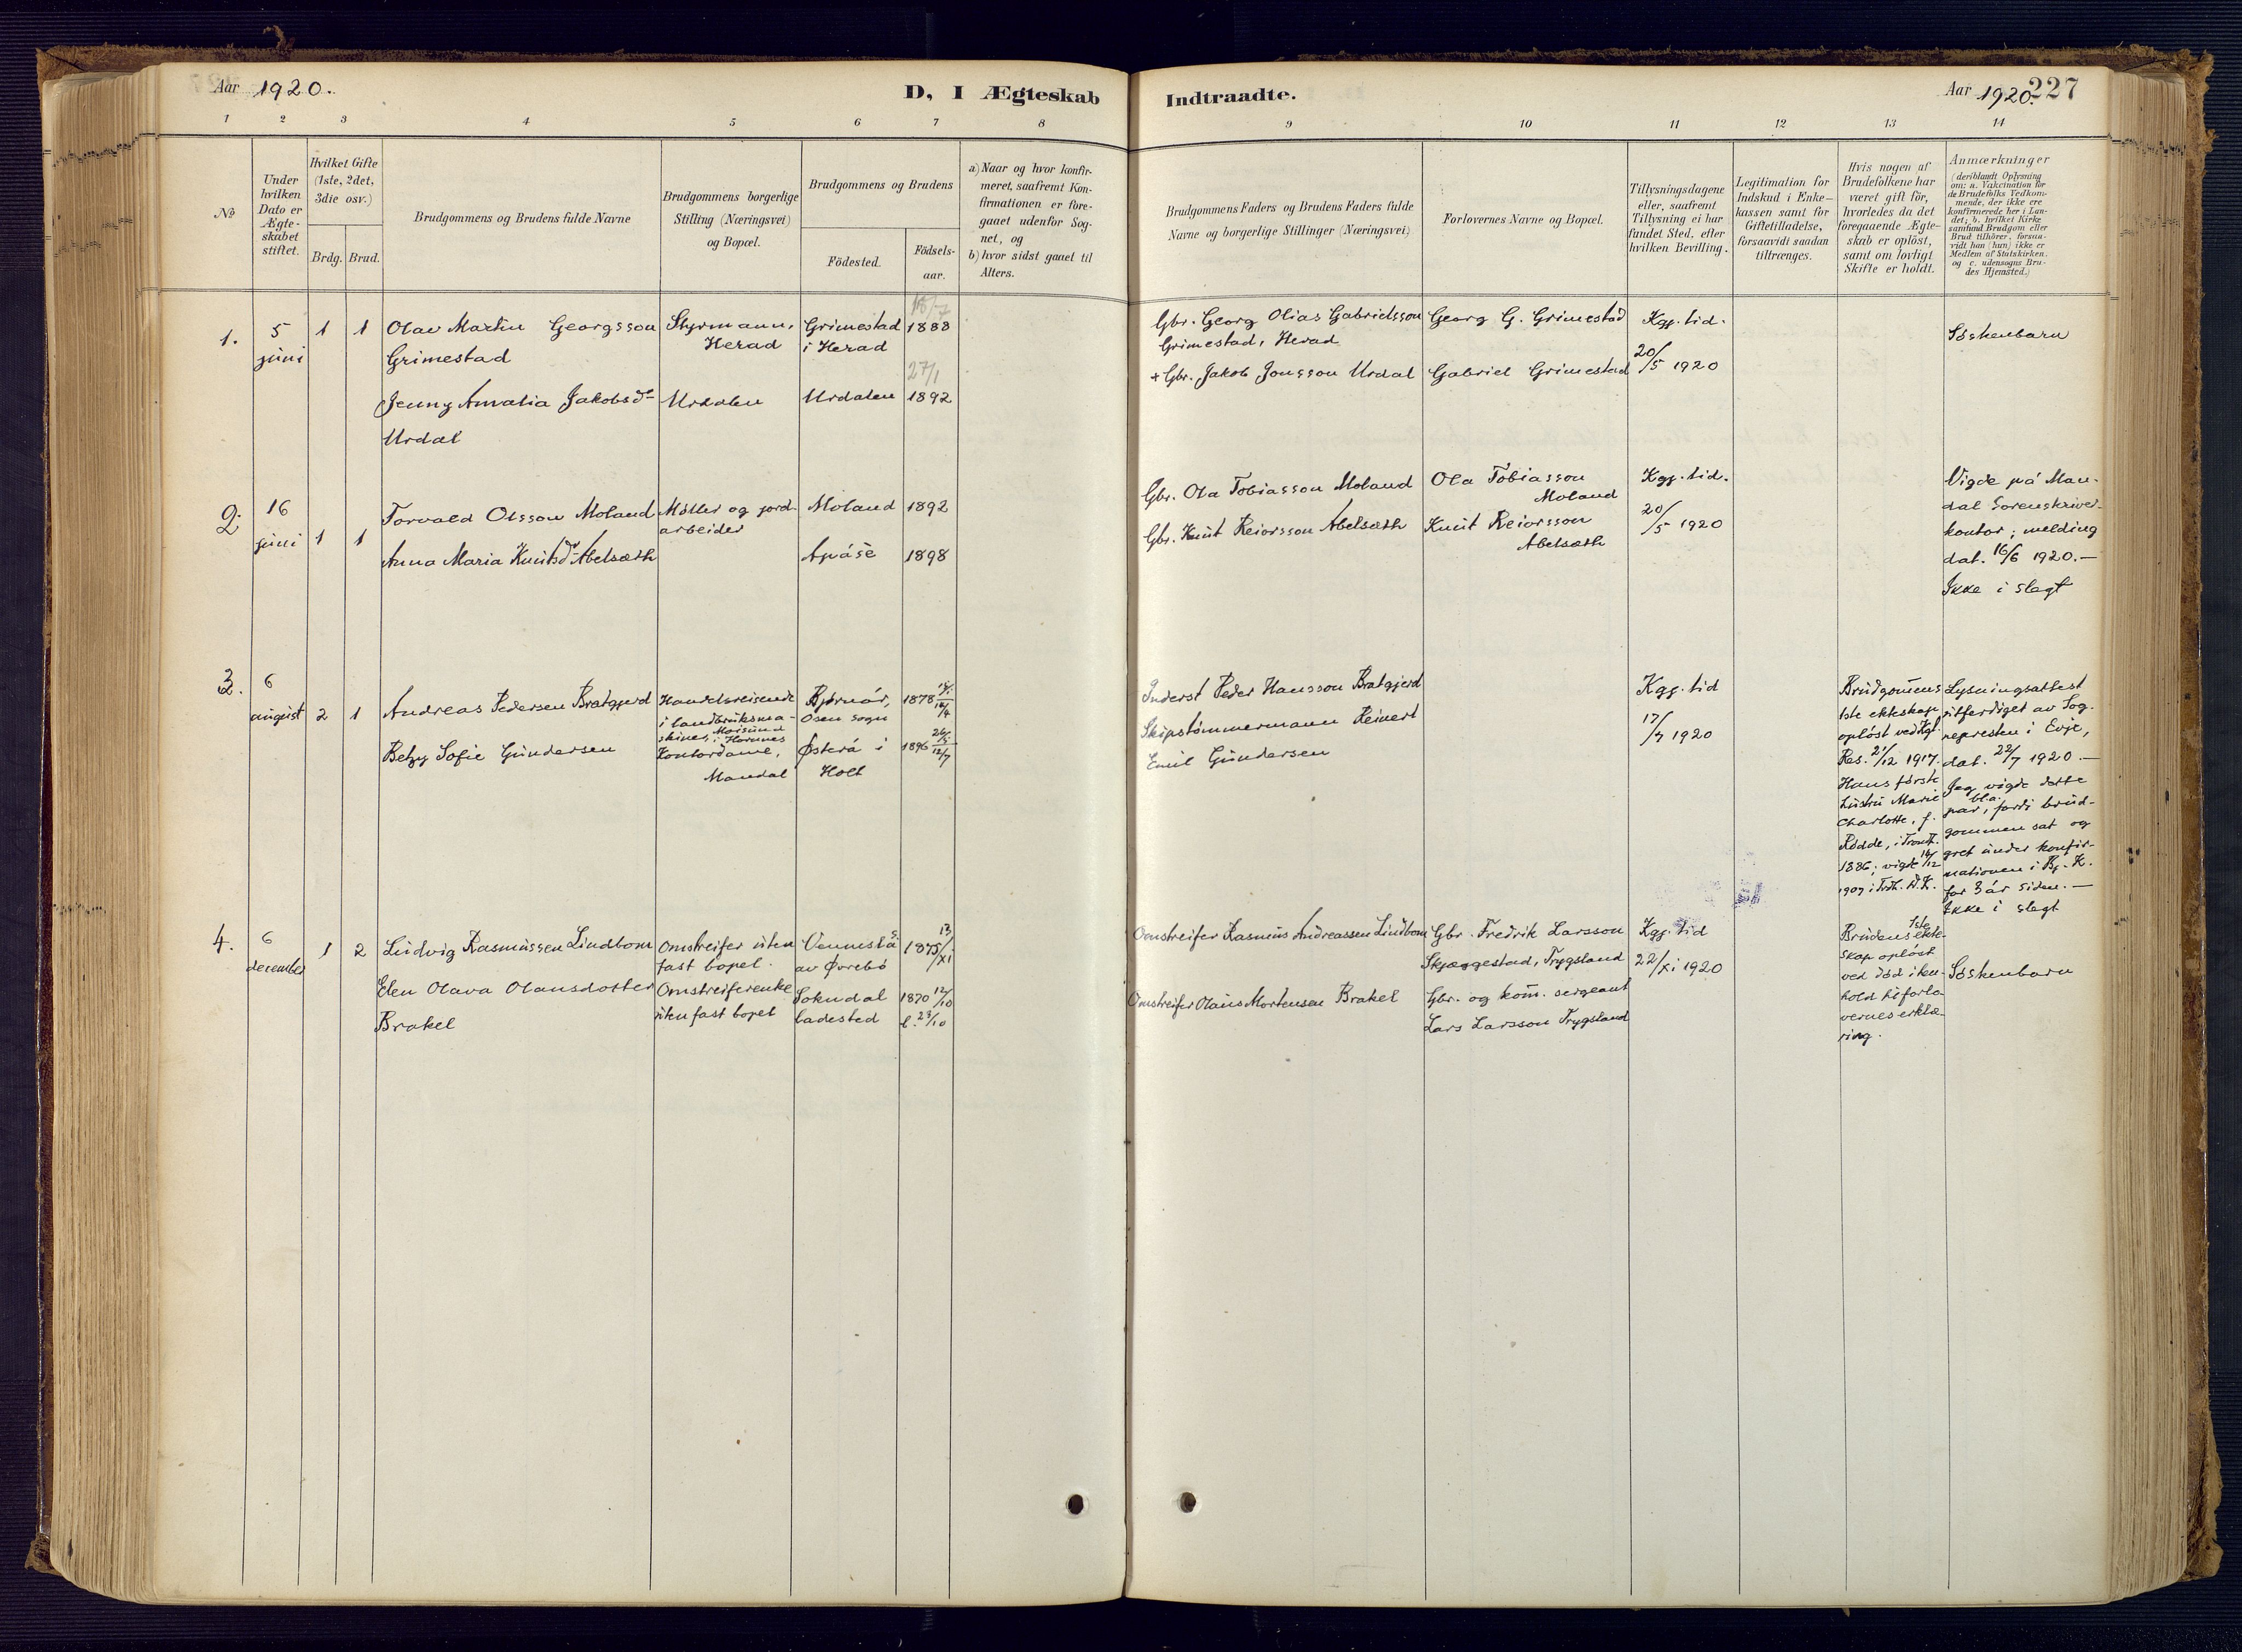 Aar 1920.
D, I Ægteskab
Indtraadte.
Aar 1920.
227
1 2 3 4 5 6 7 8
9 10 11 12 13 14
No
Under
hvilken
Dato er
Ægte-
skabet
stiftet.
Hvilket Gifte
(1ste, 2det,
3die osv.)
Brdg. Brud.
Brudgommens og Brudens fulde Navne
Brudgommens borgerlige
Stilling (Næringsvei)
og Bopæl.
Brudgommens og Brudens
Födested.
Födsels-
aar.
a) Naar og hvor konfir-
meret, saafremt Kon-
firmationen er fore-
gaaet udenfor Sog-
net, og
b) hvor sidst gaaet til
Alters.
Brudgommens Faders og Brudens Faders fulde
Navne og borgerlige Stillinger (Næringsvei)
Forlovernes Navne og Bopæl.
Tillysningsdagene
eller, saafremt
Tillysning ei har
fundet Sted, efter
hvilken Bevilling.
Legitimation for
Indskud i Enke-
kassen samt for
Giftetilladelse,
forsaavidt saadan
tiltrænges.
Hvis nogen af
Brudefolkene har
været gift før,
hvorledes da det
foregaaende Ægte-
skab er oplöst,
samt om lovligt
Skifte er holdt.
Anmærkninger
(deriblandt Oplysning
om: a. Vakcination for
de Brudefolks Vedkom-
mende, der ikke ere
konfirmerede her i Lan-
det; b. hvilket Kirke
samfund Brudgom eller
Brud tilhörer, forsaa-
vidt han (hun) ikke er
Medlem af Statskirken,
og c. udensogns Bru-
des Hjemsted.)
1.
5
juni
1 1
Olav Martin Georgsson
Grimestad
Jenny Amalia Jakobsd.
Urdal
Styrmann,
Herad
Urdalen
Grimestad
i Herad
Urdalen
18/7
1888
27/1
1892
Gbr. Georg Olias Gabrielsson
Grimestad, Herad
+ Gbr. Jakob Jonsson Urdal
Georg G. Grimestad
Gabriel Grimestad
Kgj. tid.
20/5 1920
Söskenbarn
2.
16
juni
1 1
Torvald Olsson Moland
Anna Maria Knutsd. Abelsæth
Møller og jord-
arbeider
Moland
Apåse
1892
1898
Gbr. Ola Tobiasson Moland
Gbr. Knut Reiorsson Abelsæth
Ola Tobiasson
Moland
Knut Reiorsson
Abelsæth
Kgj. tid.
20/5 1920
Vigde på Man-
dal Sorenskriver-
kontor; melding
dat. 16/6 1920.—
Ikke i slegt
3.
6
august
2 1
Andreas Pedersen Bratgjerd
Betzy Sofie Gundersen
Handelsreisende
i landbruksma-
skiner, Moisund
i Hornnes
Kontordame,
Mandal
Bjørnør,
Osen sogn
Østerå i
Holt
1878
1896
12/7
Inderst Peder Hansson Bratgjerd
Skipstömmermann Reinert
Emil Gundersen
Kgj. tid
17/7 1920
Brudgomens
1ste ekteskap
opløst ved Kgl.
Res. 21/12 1917.
Hans første
hustru Marie
Charlotte, f.
Rødde, i Trondh.
1886; vigde 16/12
1907 i Trdh. D.K.
Lysningsattest
utferdiget av Sog-
nepresten i Evje,
dat. 22/7 1920.—
Jeg vigde dette
par, bl.a. fordi brud-
gommen sat og
gret under konfir-
mationen i Bj. K.
for 3 år siden.—
Ikke i slegt
4.
6
december
1 2
Ludvig Rasmussen Lindbom
Elen Olava Olausdotter
Brakel
Omstreifer uten
fast bopel.
Omstreiferenke
uten fast bopel
Vennesla
av Øvrebö
Sokndal
ladested
1875 13/XI
1870 12/10
l. 23/10
Omstreifer Rasmus Andreassen Lindbom
Omstreifer Olaus Mortensen Brakel
Gbr. Fredrik Larsson
Skjæggestad, Trygsland
Gbr. og kom. sergeant
Lars Larsson Trygsland
Kgj. tid
22/XI 1920
Brudens 1ste ekte-
skap opløst
ved död i hen-
hold til forlo-
vernes erklæ-
ring.
Söskenbarn